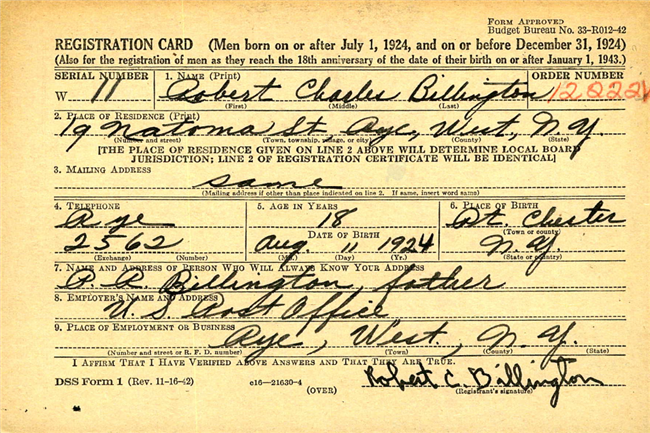 FORM APPROVED
Budget Bureau No. 33-R012-42
REGISTRATION CARD (Men born on or after July 1, 1924, and on or before December 31, 1924)
(Also for the registration of men as they reach the 18th anniversary of the date of their birth on or after January 1, 1943.)
SERIAL NUMBER 1. NAME (Print) ORDER NUMBER
W 11 Robert Charles Billington
(First) (Middle) (Last)
2. PLACE OF RESIDENCE (Print)
19 Natoma St. Rye, West, N.Y.
(Number and street) (Town, township, village, or city) (County) (State)
[THE PLACE OF RESIDENCE GIVEN ON LINE 2 ABOVE WILL DETERMINE LOCAL BOARD
JURISDICTION; LINE 2 OF REGISTRATION CERTIFICATE WILL BE IDENTICAL]
3. MAILING ADDRESS
same
(Mailing address if other than place indicated on line 2. If same, insert word same)
4. TELEPHONE 5. AGE IN YEARS 6. PLACE OF BIRTH
Rye 18 Pt. Chester
DATE OF BIRTH (Town or county)
2562 Aug. 11 1924 N.Y.
(Exchange) (Number) (Mo.) (Day) (Yr.) (State or country)
7. NAME AND ADDRESS OF PERSON WHO WILL ALWAYS KNOW YOUR ADDRESS
Billington, father
8. EMPLOYER'S NAME AND ADDRESS
U. S. Post Office
9. PLACE OF EMPLOYMENT OR BUSINESS
Rye, West., N.Y.
(Number and street or R. F. D. number) (Town) (County) (State)
I AFFIRM THAT I HAVE VERIFIED ABOVE ANSWERS AND THAT THEY ARE TRUE.
DSS Form 1 (Rev. 11-16-42) c16—21630-4 Robert C. Billington
(OVER) (Registrant's signature)